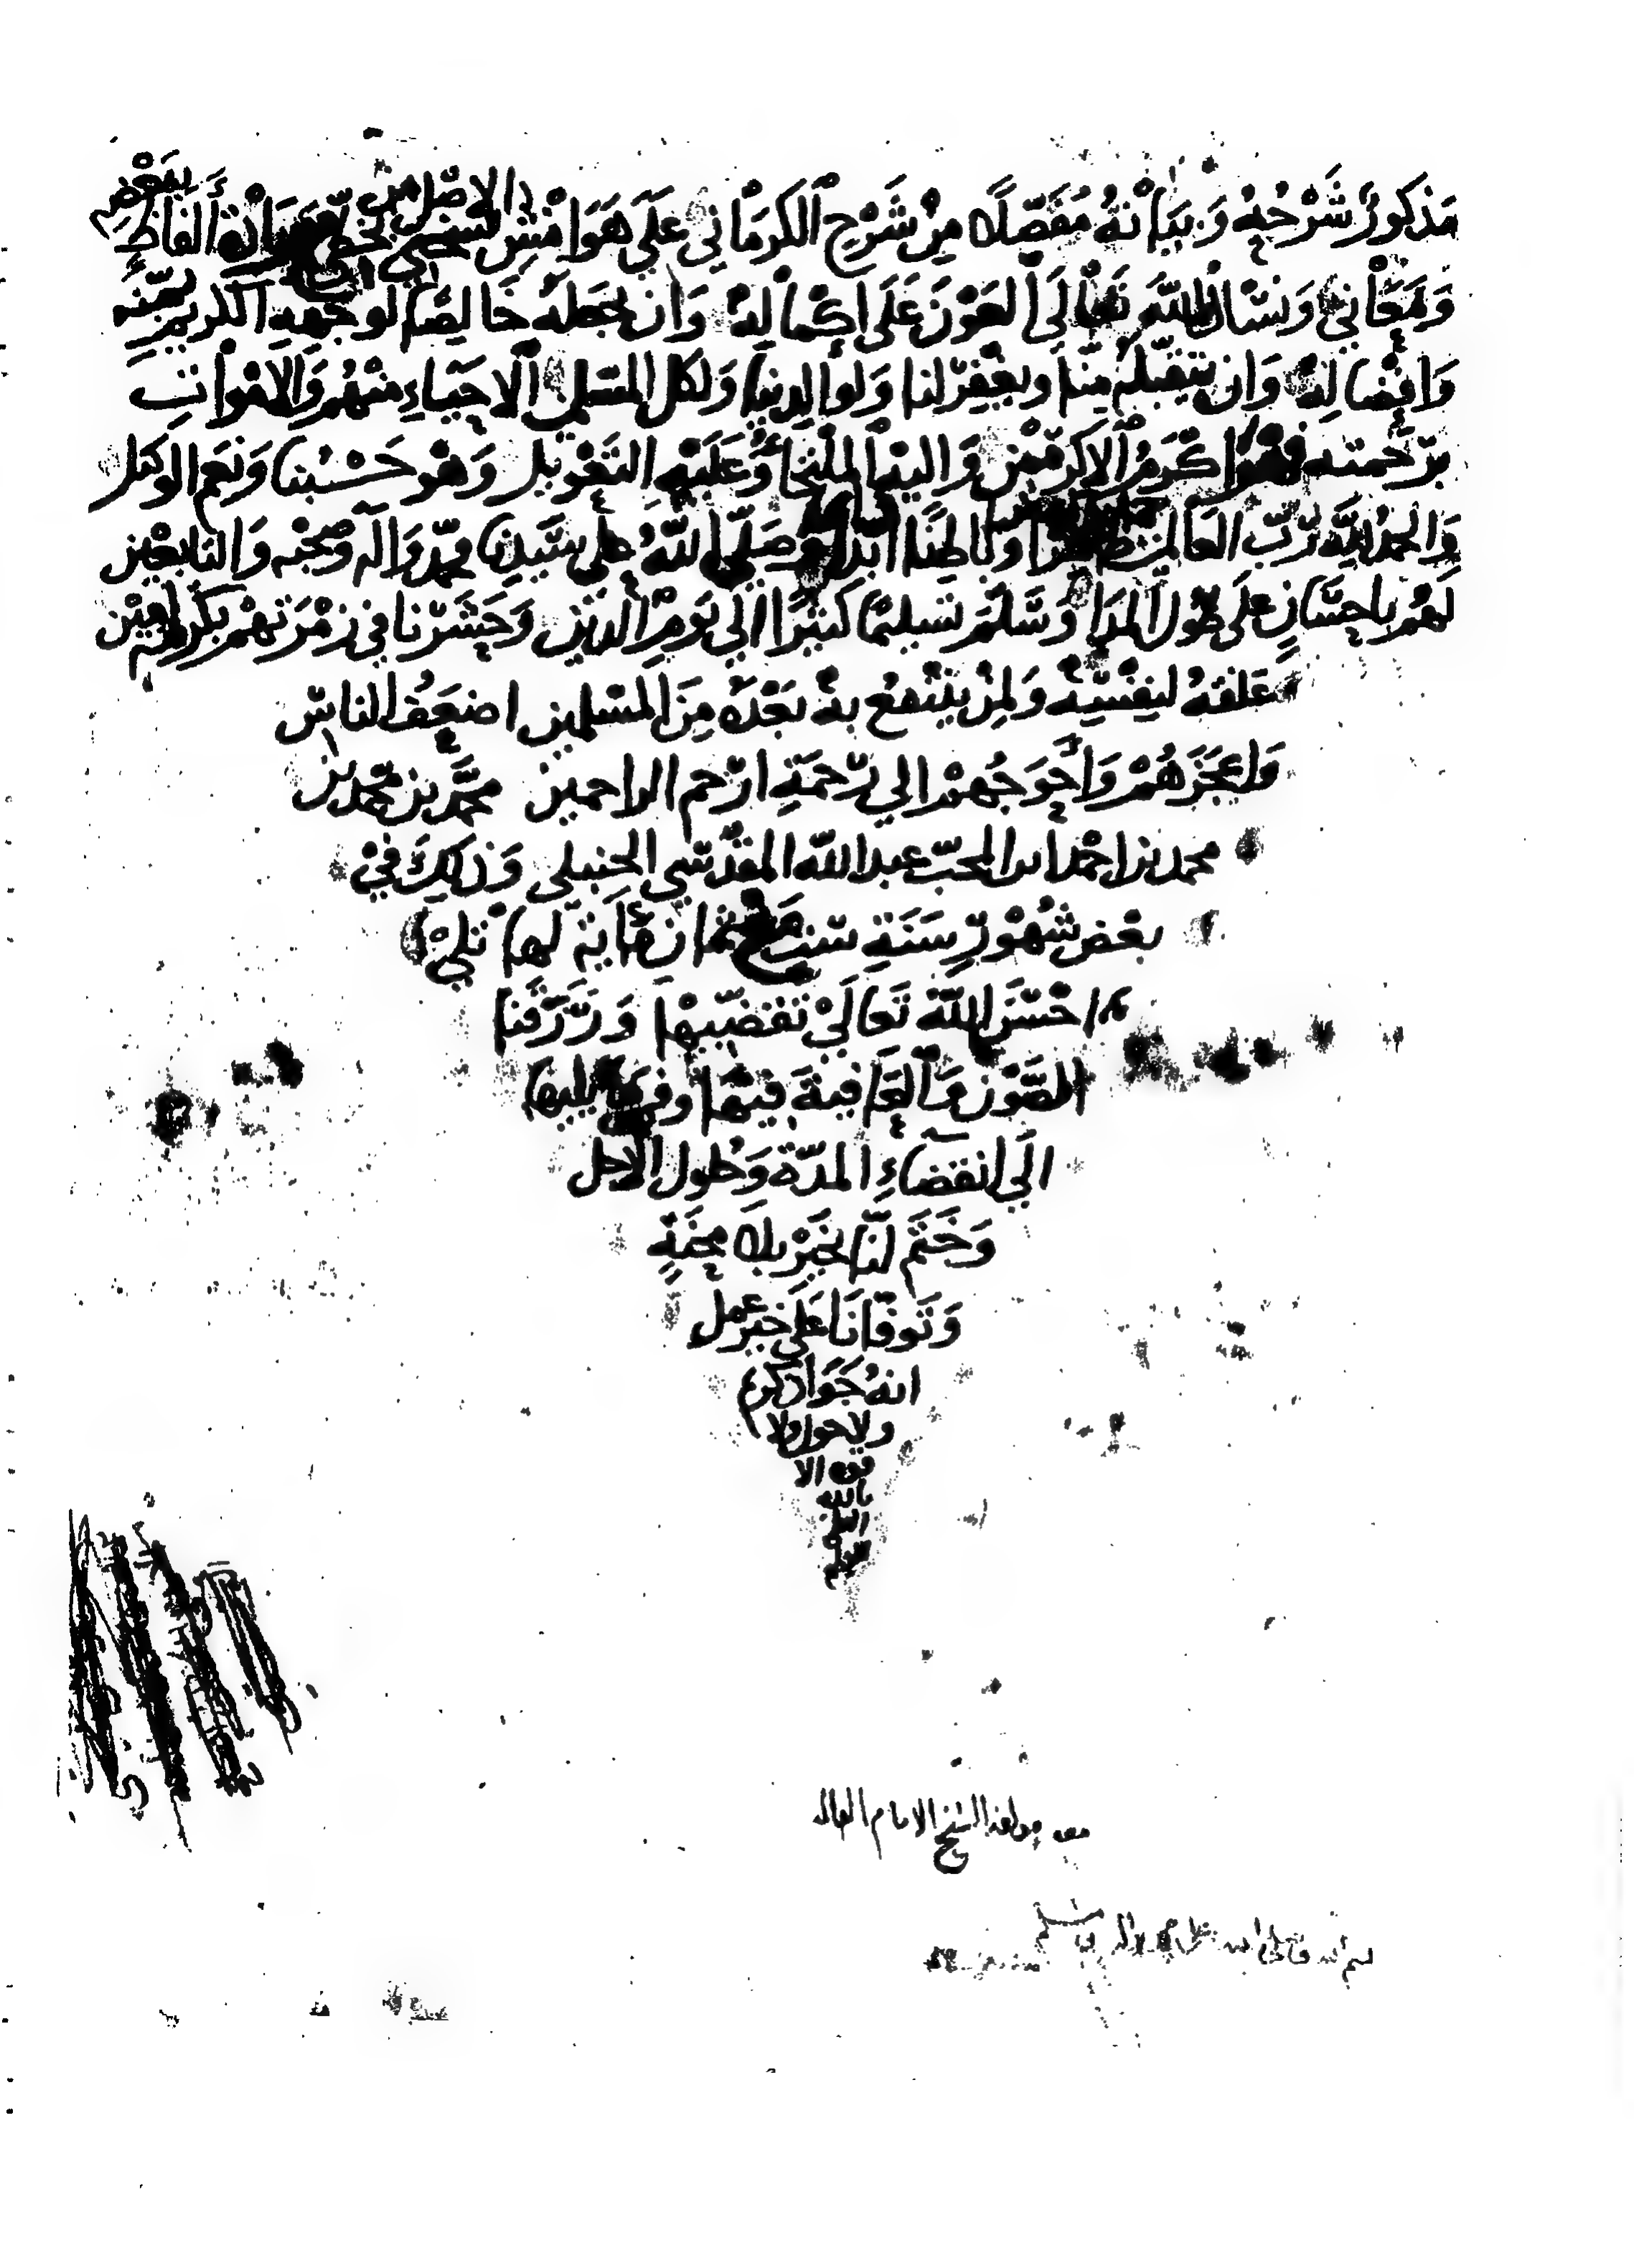 مَذكورٌ شَرْحُهُ وَبَيَانُهُ مُفَصَّلًا مِنْ شَرْحِ الكرمَاني عَلَى هَوَامِشِ الاصل من بعض ألفاظٍ
وَمَعَاني وَنسْال اللهَ تعَالَى العَوْنَ عَلَى اكمالِهِ وَان يجعَلَهُ خَالِصًا لوجههِ الكريم بمنه
وَافضالِهِ وَان يتقبلهُ مِنّا ويغفِرْ لنا وَلوالِدينا وَلكل المسلمين الاحيَاءِ منهُم وَالامْوَاتِ
برَحمته فهوَ اكرَمُ الاكرَمين وَاليهْ الملتجأ وَعَليْهِ التعْويل وَهْو حَسْبُنا وَنعم الوكيل
وَالحمدُ للهِ رَبّ العَالمين ظاهرا وبَاطِنًا ابدا وَصَلّى اللهُ على سَيّدِنا محمّد وَآله وَصحْبه وَالتابعْين
لَهُم باحسَانٍ عَلَى طُول المدَا وَسَلَّمَ تسليمًا كثيْرًا الَى يَومِ الدّين وَحَشَرْنا في زمْرَتهْم بكرمه امين
عَلقهُ لنِفسْهِ وَلِمنْ يَنْتفعُ بهِ بَعْدَهُ مِنَ المسْلمين اضعَفُ الناسْ
وَاعجَزهُمْ وَاحوَجُهمْ الي رَحمَةِ ارْحم الراحمين محمَّد بن محمَّد بن
محمد بن احمْد ابن المحبّ عبد الله المقدْسي الحنبلي وَذلِكَ فيْ
بعْض شهُوْرِ سَنَةِ ست ثمان مايَة لها تليْ
احْسَنَ اللهُ تعَالَىْ تقضيْها وَرَزَقَنا
الصَّوْن وَالعَافيةَ فيْهَا وفيما يليها
الَي انقضَاءِ المدّة وَطول الاجل
وَخَتَم لَنا بخَيْر بلا محْنَةٍ
وَتَوفّانَا عَلى خيْر عمل
انهُ جَوَاد كريم
ولا حول ولا
قوه الا
بالله
العلي
العظيم
مولفه الشيخ الامام العالم